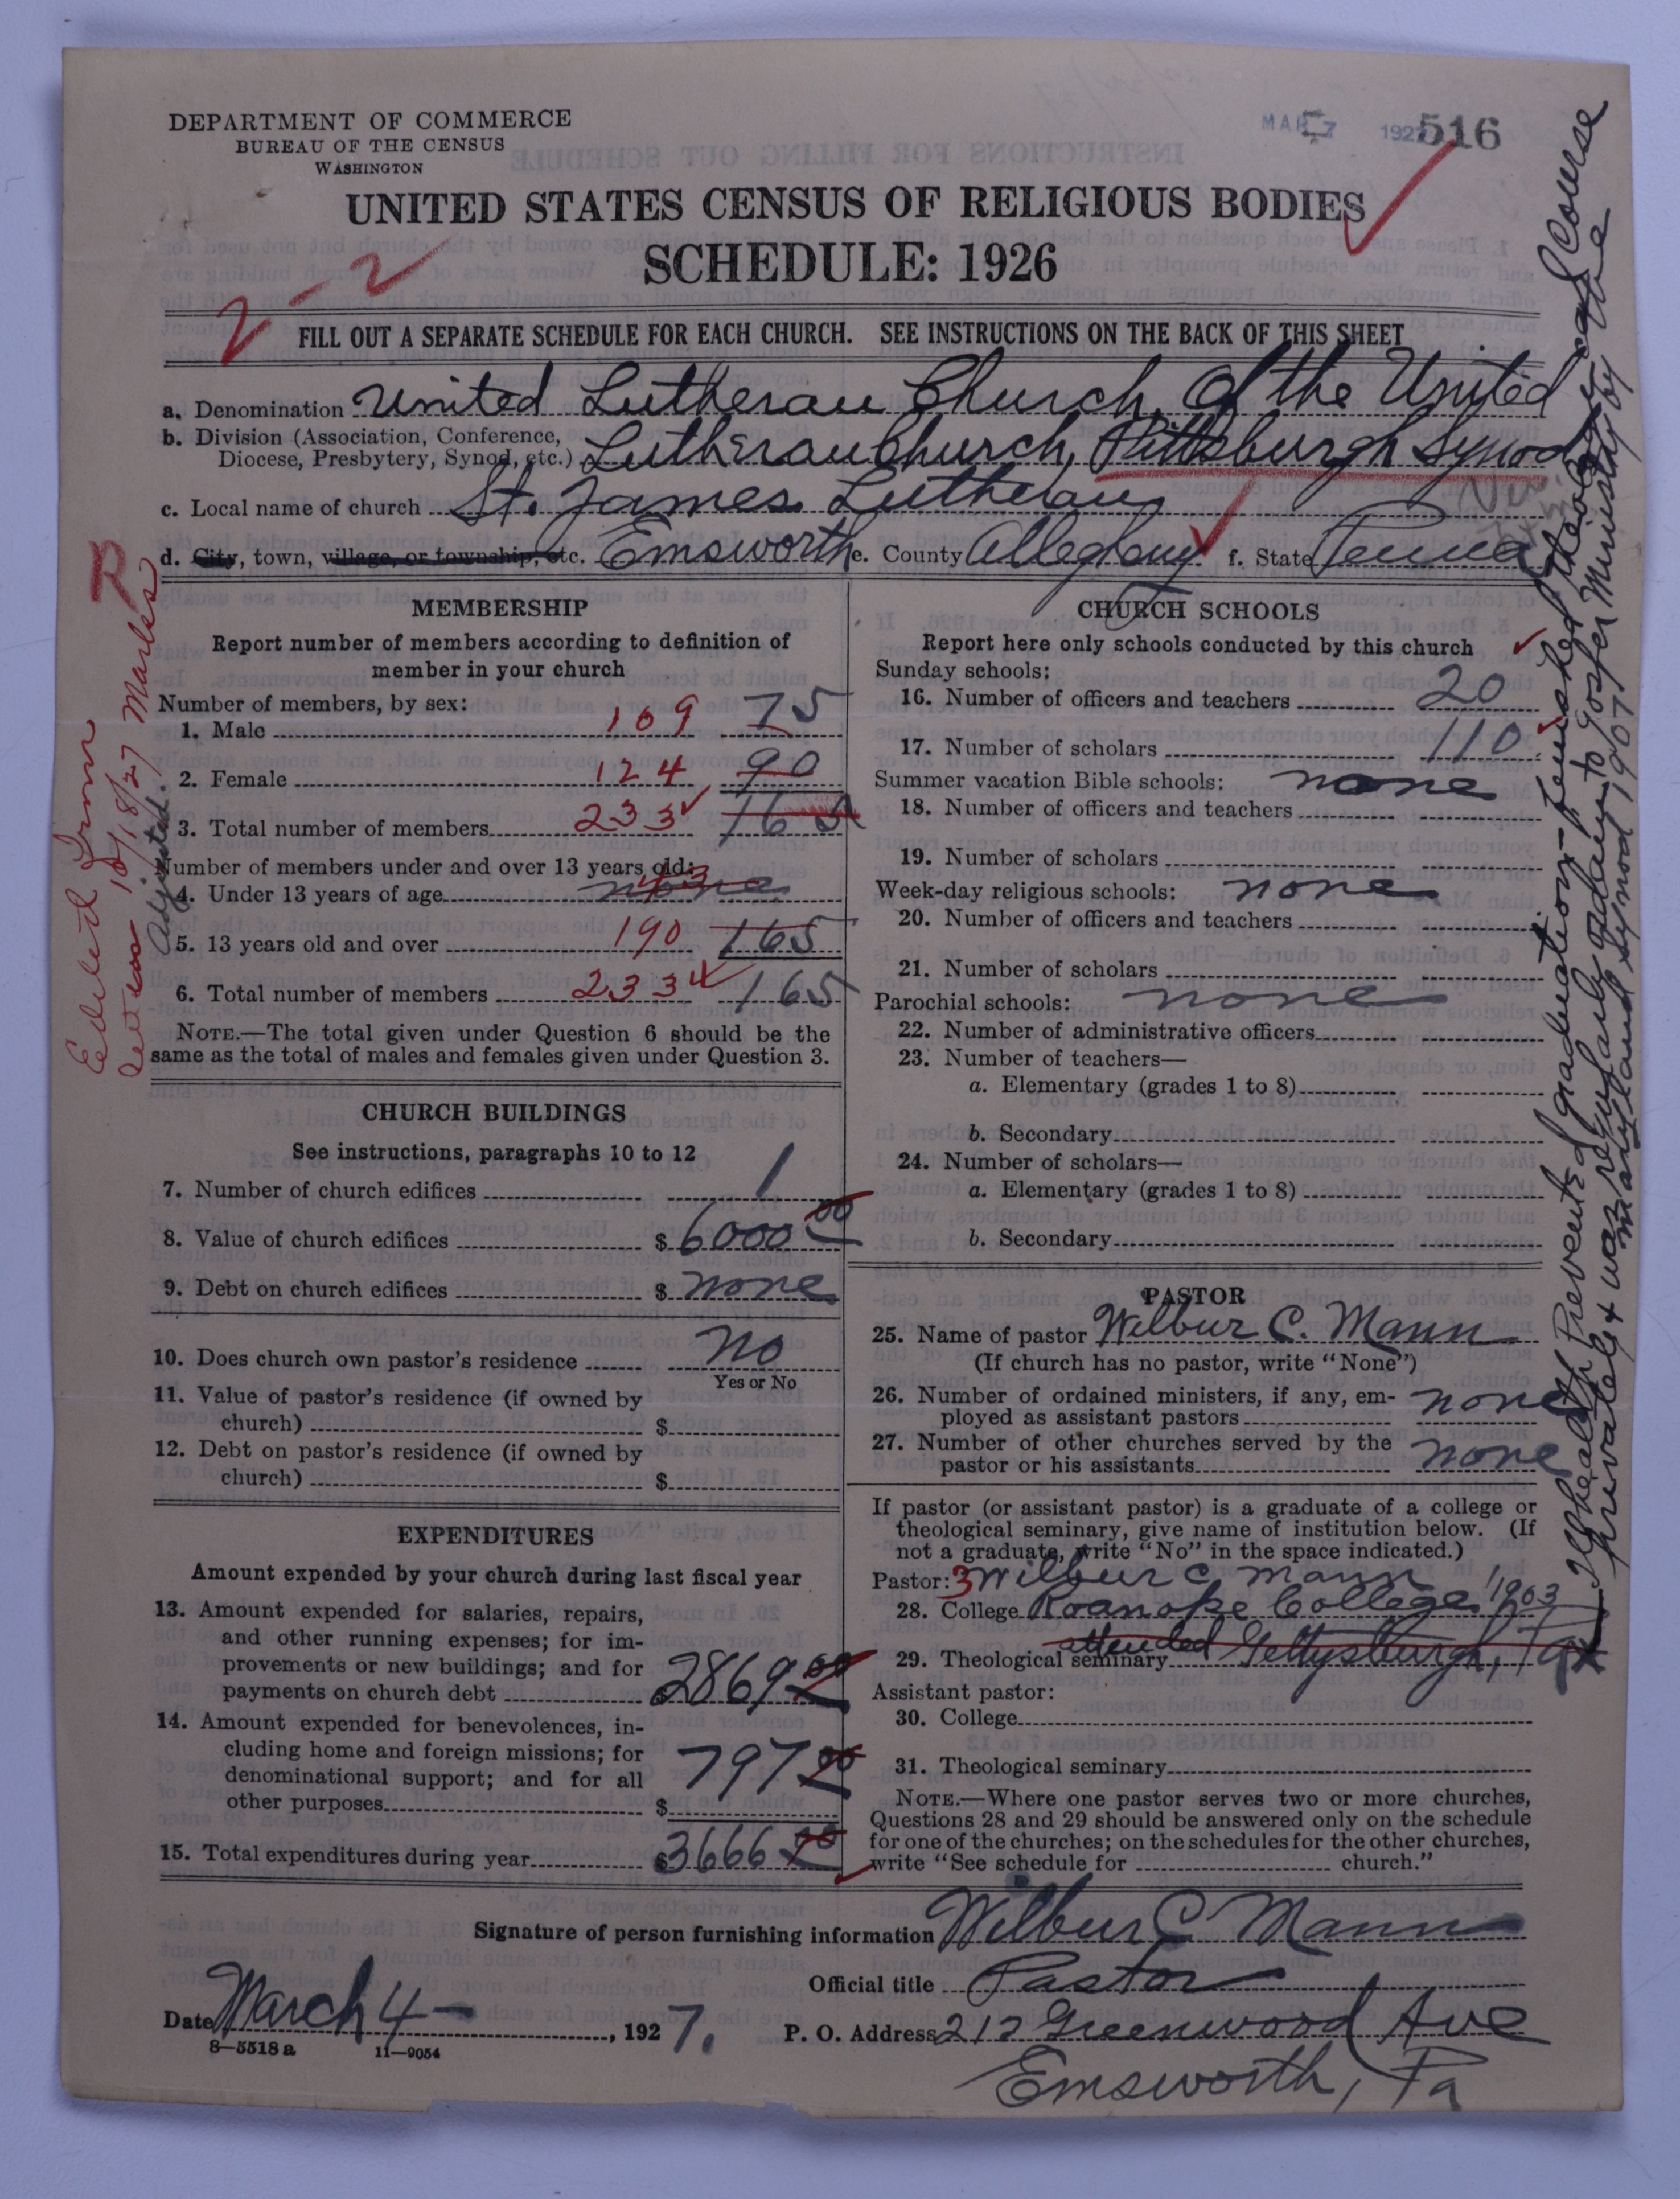 DEPARTMENT OF COMMERCE
BUREAU OF THE CENSUS
WASHINGTON
MAR 7 1927
516
UNITED STATES CENSUS OF RELIGIOUS BODIES
SCHEDULE: 1926
2-2
FILL OUT A SEPARATE SCHEDULE FOR EACH CHURCH. SEE INSTRUCTIONS ON THE BACK OF THIS SHEET
a. Denomination United Lutheran Church, Of the United
b. Division (Association, Conference, Diocese, Presbytery, Synod, etc.) Lutheran Church, Pittsburgh Synod
c. Local name of church St. James Lutheran
d. City, town, village, or township, etc. Emsworth e. County Allegheny f. State Penna
MEMBERSHIP
Report number of members according to definition of
member in your church
Number of members, by sex:
1. Male 109 75
2. Female 124 90
3. Total number of members 233 165
Number of members under and over 13 years old:
4. Under 13 years of age none 43
5. 13 years old and over 190 165
6. Total number of members 233 165
NOTE.—The total given under Question 6 should be the
same as the total of males and females given under Question 3.
CHURCH BUILDINGS
See instructions, paragraphs 10 to 12
7. Number of church edifices 1
8. Value of church edifices $ 6000 00
9. Debt on church edifices $ none
10. Does church own pastor's residence No
Yes or No
11. Value of pastor's residence (if owned by
church) $
12. Debt on pastor's residence (if owned by
church) $
EXPENDITURES
Amount expended by your church during last fiscal year
13. Amount expended for salaries, repairs,
and other running expenses; for im-
provements or new buildings; and for
payments on church debt 2869 00
14. Amount expended for benevolences, in-
cluding home and foreign missions; for
denominational support; and for all
other purposes $ 797 00
15. Total expenditures during year $ 3666 00
CHURCH SCHOOLS
Report here only schools conducted by this church
Sunday schools:
16. Number of officers and teachers 20
17. Number of scholars 110
Summer vacation Bible schools: none
18. Number of officers and teachers
19. Number of scholars
Week-day religious schools: none
20. Number of officers and teachers
21. Number of scholars
Parochial schools: none
22. Number of administrative officers
23. Number of teachers—
a. Elementary (grades 1 to 8)
b. Secondary
24. Number of scholars—
a. Elementary (grades 1 to 8)
b. Secondary
PASTOR
25. Name of pastor Wilbur C. Mann
(If church has no pastor, write "None")
26. Number of ordained ministers, if any, em-
ployed as assistant pastors none
27. Number of other churches served by the
pastor or his assistants none
If pastor (or assistant pastor) is a graduate of a college or
theological seminary, give name of institution below. (If
not a graduate, write "No" in the space indicated.)
Pastor: 3 Wilbur C Mann
28. College Roanoke College 1903
29. Theological seminary attended Gettysburgh, Pa
Assistant pastor:
30. College
31. Theological seminary
NOTE.—Where one pastor serves two or more churches,
Questions 28 and 29 should be answered only on the schedule
for one of the churches; on the schedules for the other churches,
write "See schedule for church."
Signature of person furnishing information Wilbur C Mann
Official title Pastor
Date March 4 - , 1927.
P. O. Address 212 Greenwood Ave
Emsworth, Pa
8—5518 a 11—9054
Ill health prevented graduation- finished theological Course
privately & was regularly ordain to Gospel Ministry by the
Maryland Synod 1907
R
Edited
10/18/27 Marks
Adjusted